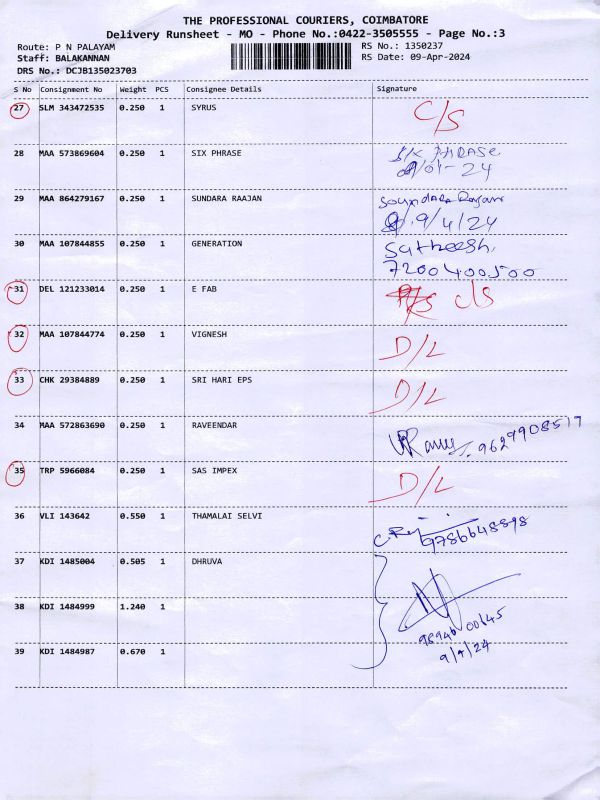 THE PROFESSIONAL COURIERS, COIMBATORE
Delivery Runsheet - MO - Phone No.:0422-3505555 - Page No.:3
Route: P N PALAYAM RS No.: 1350237
Staff: BALAKANNAN RS Date: 09-Apr-2024
DRS No.: DCJB135023703
S No Consignment No Weight PCS Consignee Details Signature
27 SLM 343472535 0.250 1 SYRUS C/S
28 MAA 573869604 0.250 1 SIX PHRASE SIX PHRASE
29 MAA 864279167 0.250 1 SUNDARA RAAJAN Soundara Rajan
9/4/24
30 MAA 107844855 0.250 1 GENERATION Satheesh.
7200400500
31 DEL 121233014 0.250 1 E FAB C/S
32 MAA 107844774 0.250 1 VIGNESH D/L
33 CHK 29384889 0.250 1 SRI HARI EPS D/L
34 MAA 572863690 0.250 1 RAVEENDAR 9629908517
35 TRP 5966084 0.250 1 SAS IMPEX D/L
36 VLI 143642 0.550 1 THAMALAI SELVI 9786648898
37 KDI 1485004 0.505 1 DHRUVA
38 KDI 1484999 1.240 1
39 KDI 1484987 0.670 1
9/4/24